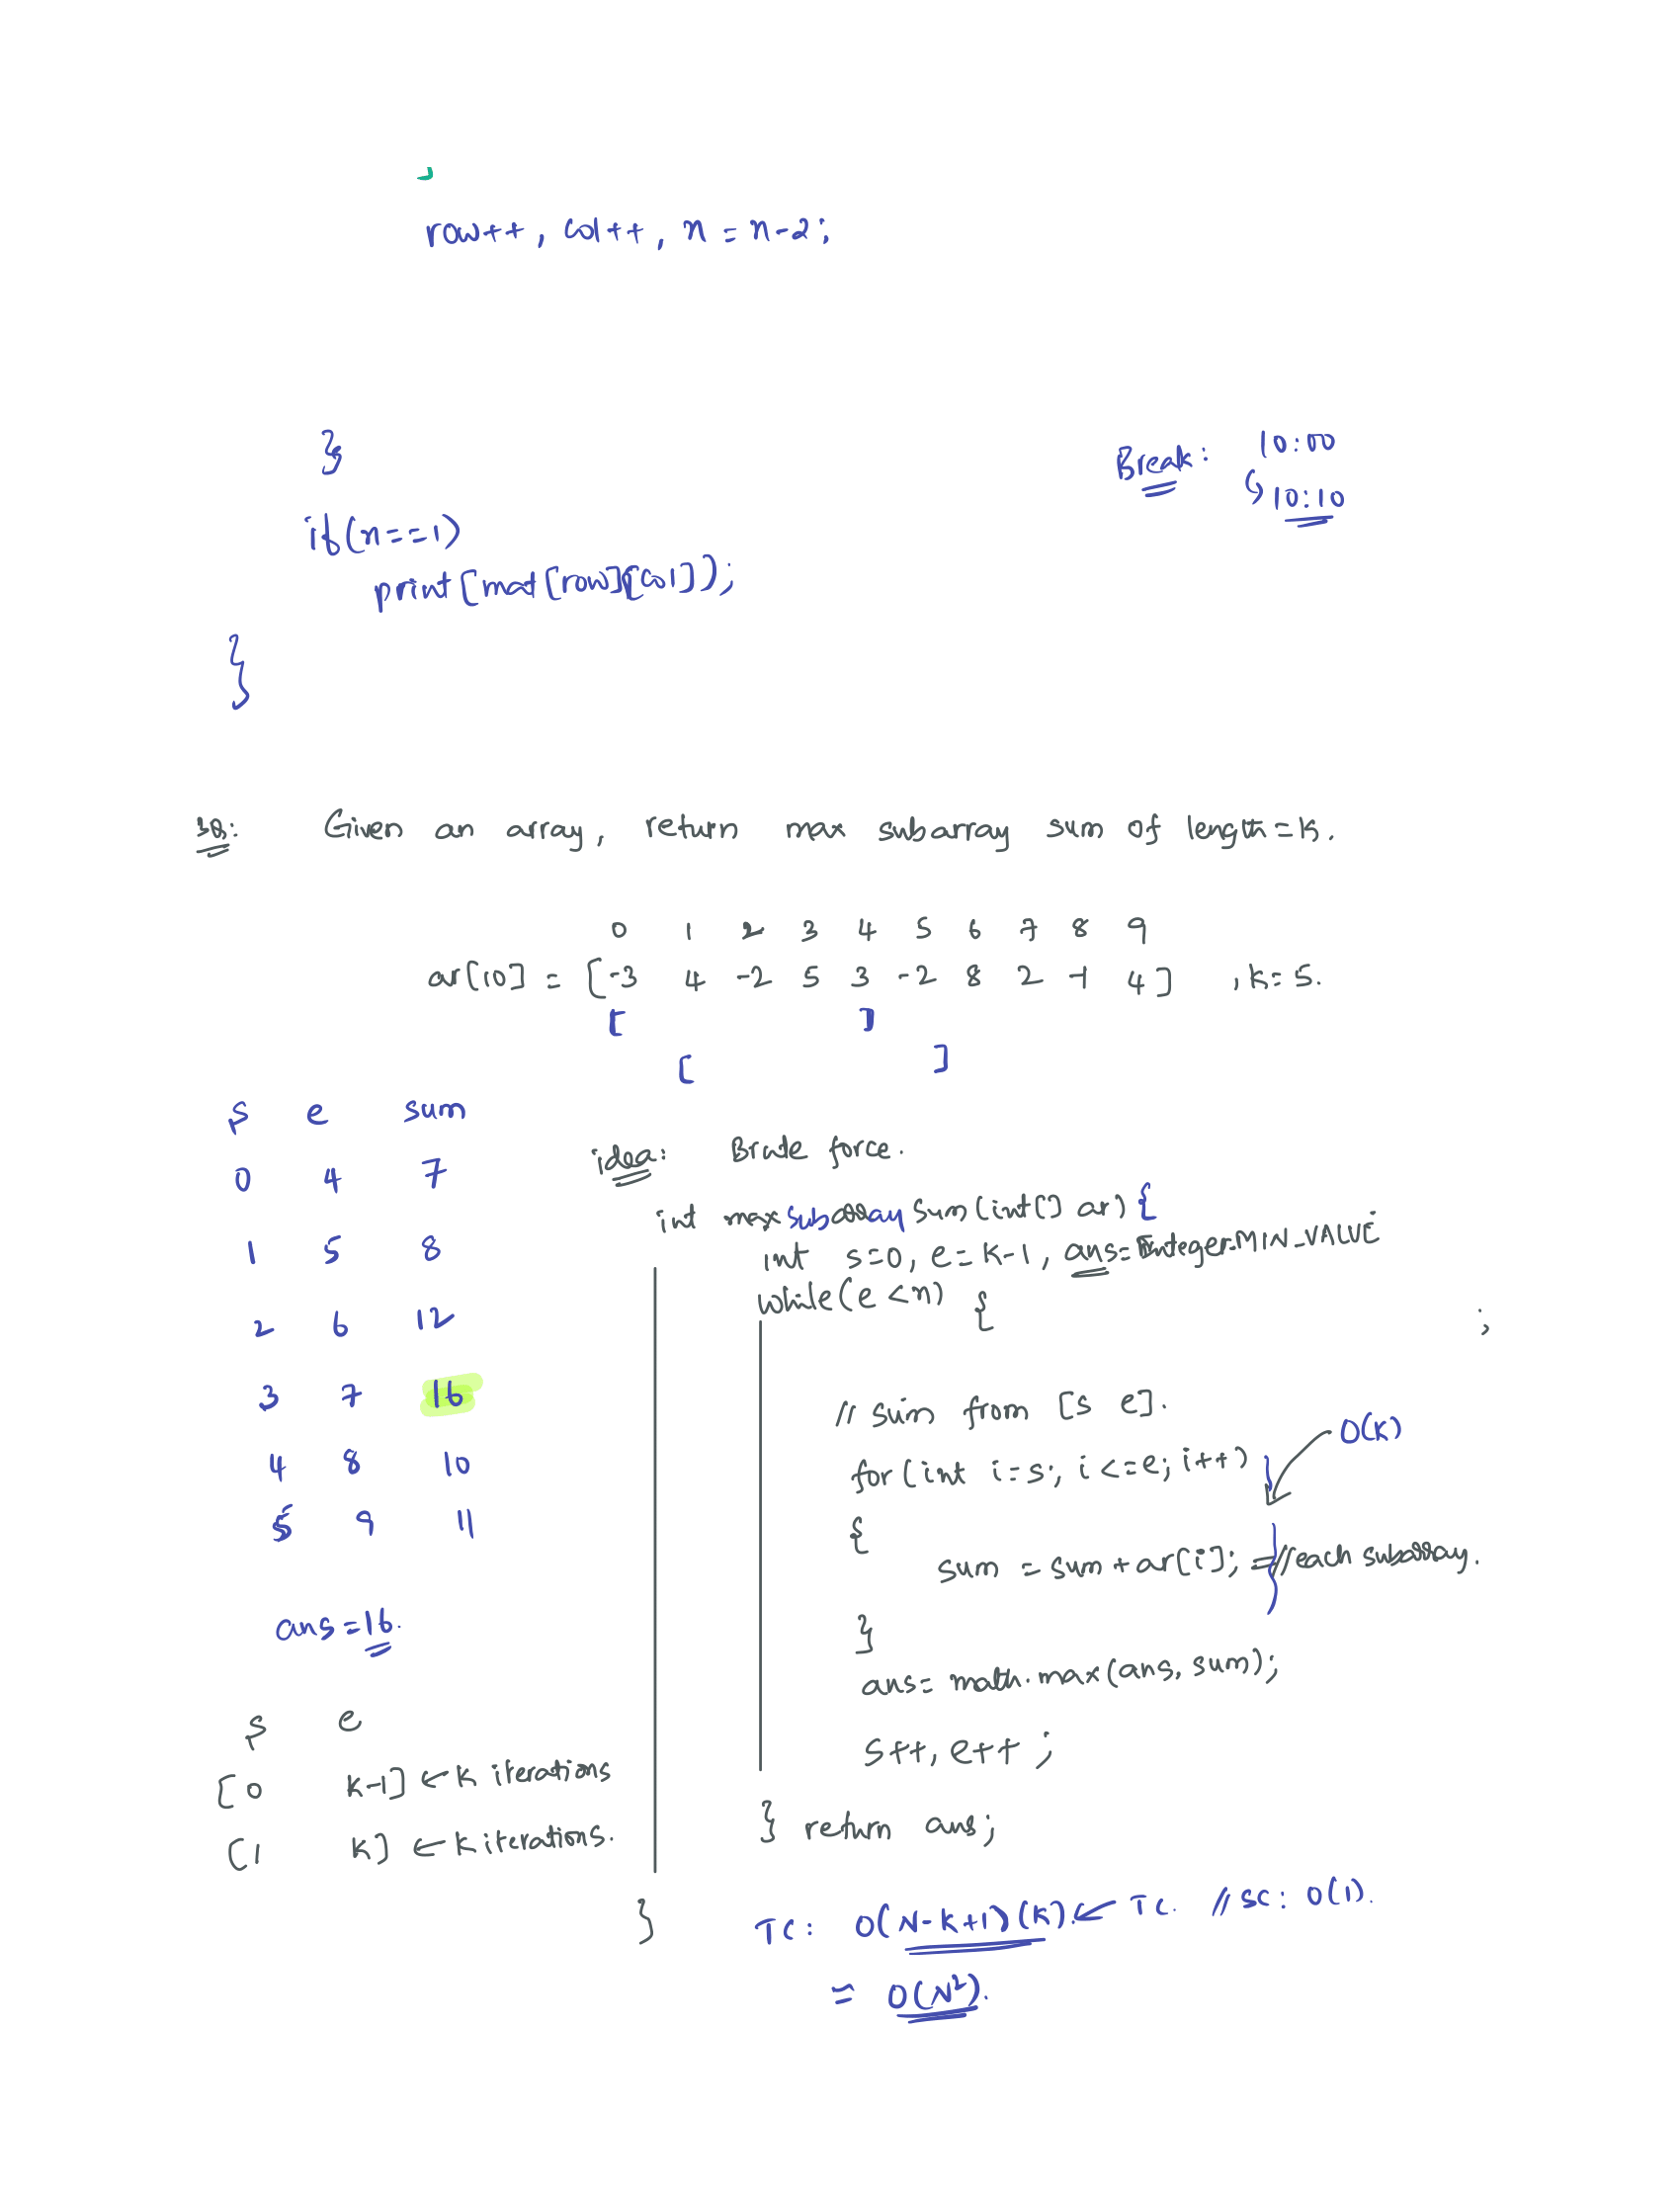 row++, col++, n = n-2;
}
Break: 10:00
↳ 10:10
if(n==1)
print[mat[row][col]);
}
3Q: Given an array, return max subarray sum of length=k.
0 1 2 3 4 5 6 7 8 9
ar[10] = [-3 4 -2 5 3 -2 8 2 -1 4] , k= 5.
[ ]
[ ]
s e sum
0 4 7
1 5 8
2 6 12
3 7 16
4 8 10
5 9 11
ans=16.
s e
[0 k-1] ← k iterations
[1 k] ← k iterations.
idea: Brute force.
int maxsubarray sum(int[] ar) {
int s=0, e=k-1, ans=Integer.MIN_VALUE
;
while(e <n) {
// sum from [s e].
for(int i=s; i<=e; i++)
O(k)
{
sum = sum+ar[i]; =//each subarray.
}
ans= math.max(ans, sum);
s++, e++ ;
} return ans;
}
TC: O(N-k+1)(k). ← TC. // SC: O(1).
= O(N²).